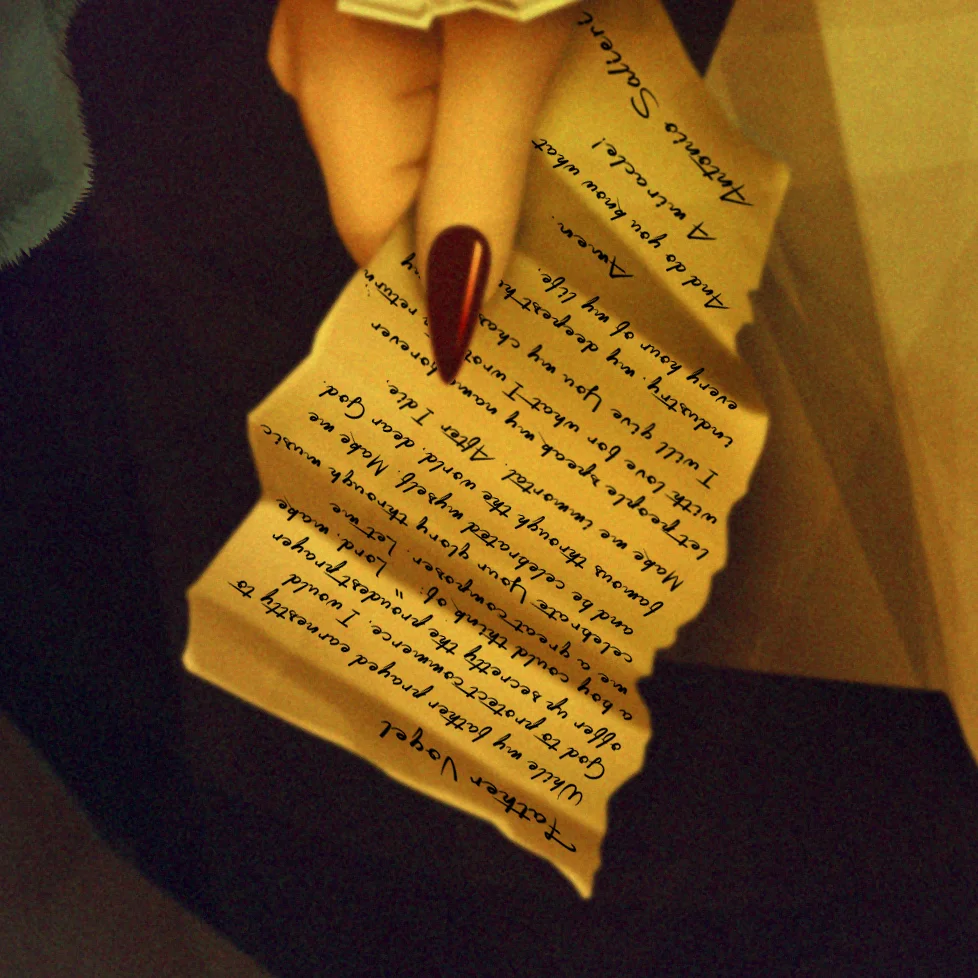 Father Vogel
While my father prayed earnestly to
God to protect commerce. I would
offer up secretly the proudest prayer
a boy could think of: "Lord. make
me a great composer. Let me
celebrate Your glory through music
and be celebrated myself. Make me
famous through the world. dear God.
Make me immortal. After I die.
let people speak my name forever
with love for what I wrot return
I will give You my chas my
industry. my deepest h
every hour of my life.
Amen.
And do you know what
A miracle!
Antonio Salieri